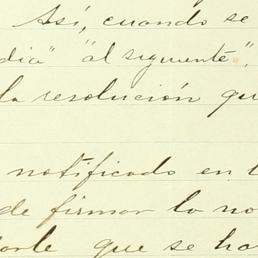 Así, cuando se
dia" "al siguiente",
la resolución qu
notificado en l
de firmar la no
que se ha